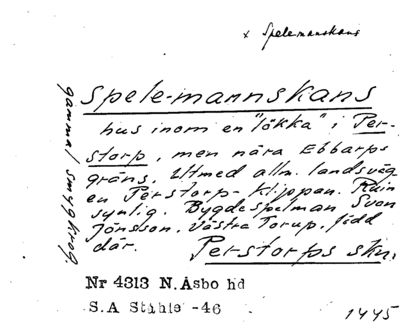 x Spelemanskans
Spele-mannskans
hus inom en "lökka" i Per-
storp, men nära Ebbarps
gräns. Utmed allm. landsväg
en Perstorp-Klippan. Ruin
synlig. Bygdespelman Sven
Jönsson, Västra Torup, född
där.
Perstorps skn.
gammal smygkrog.
Nr 4313 N. Åsbo hd
S.A Ståhle -46
1445